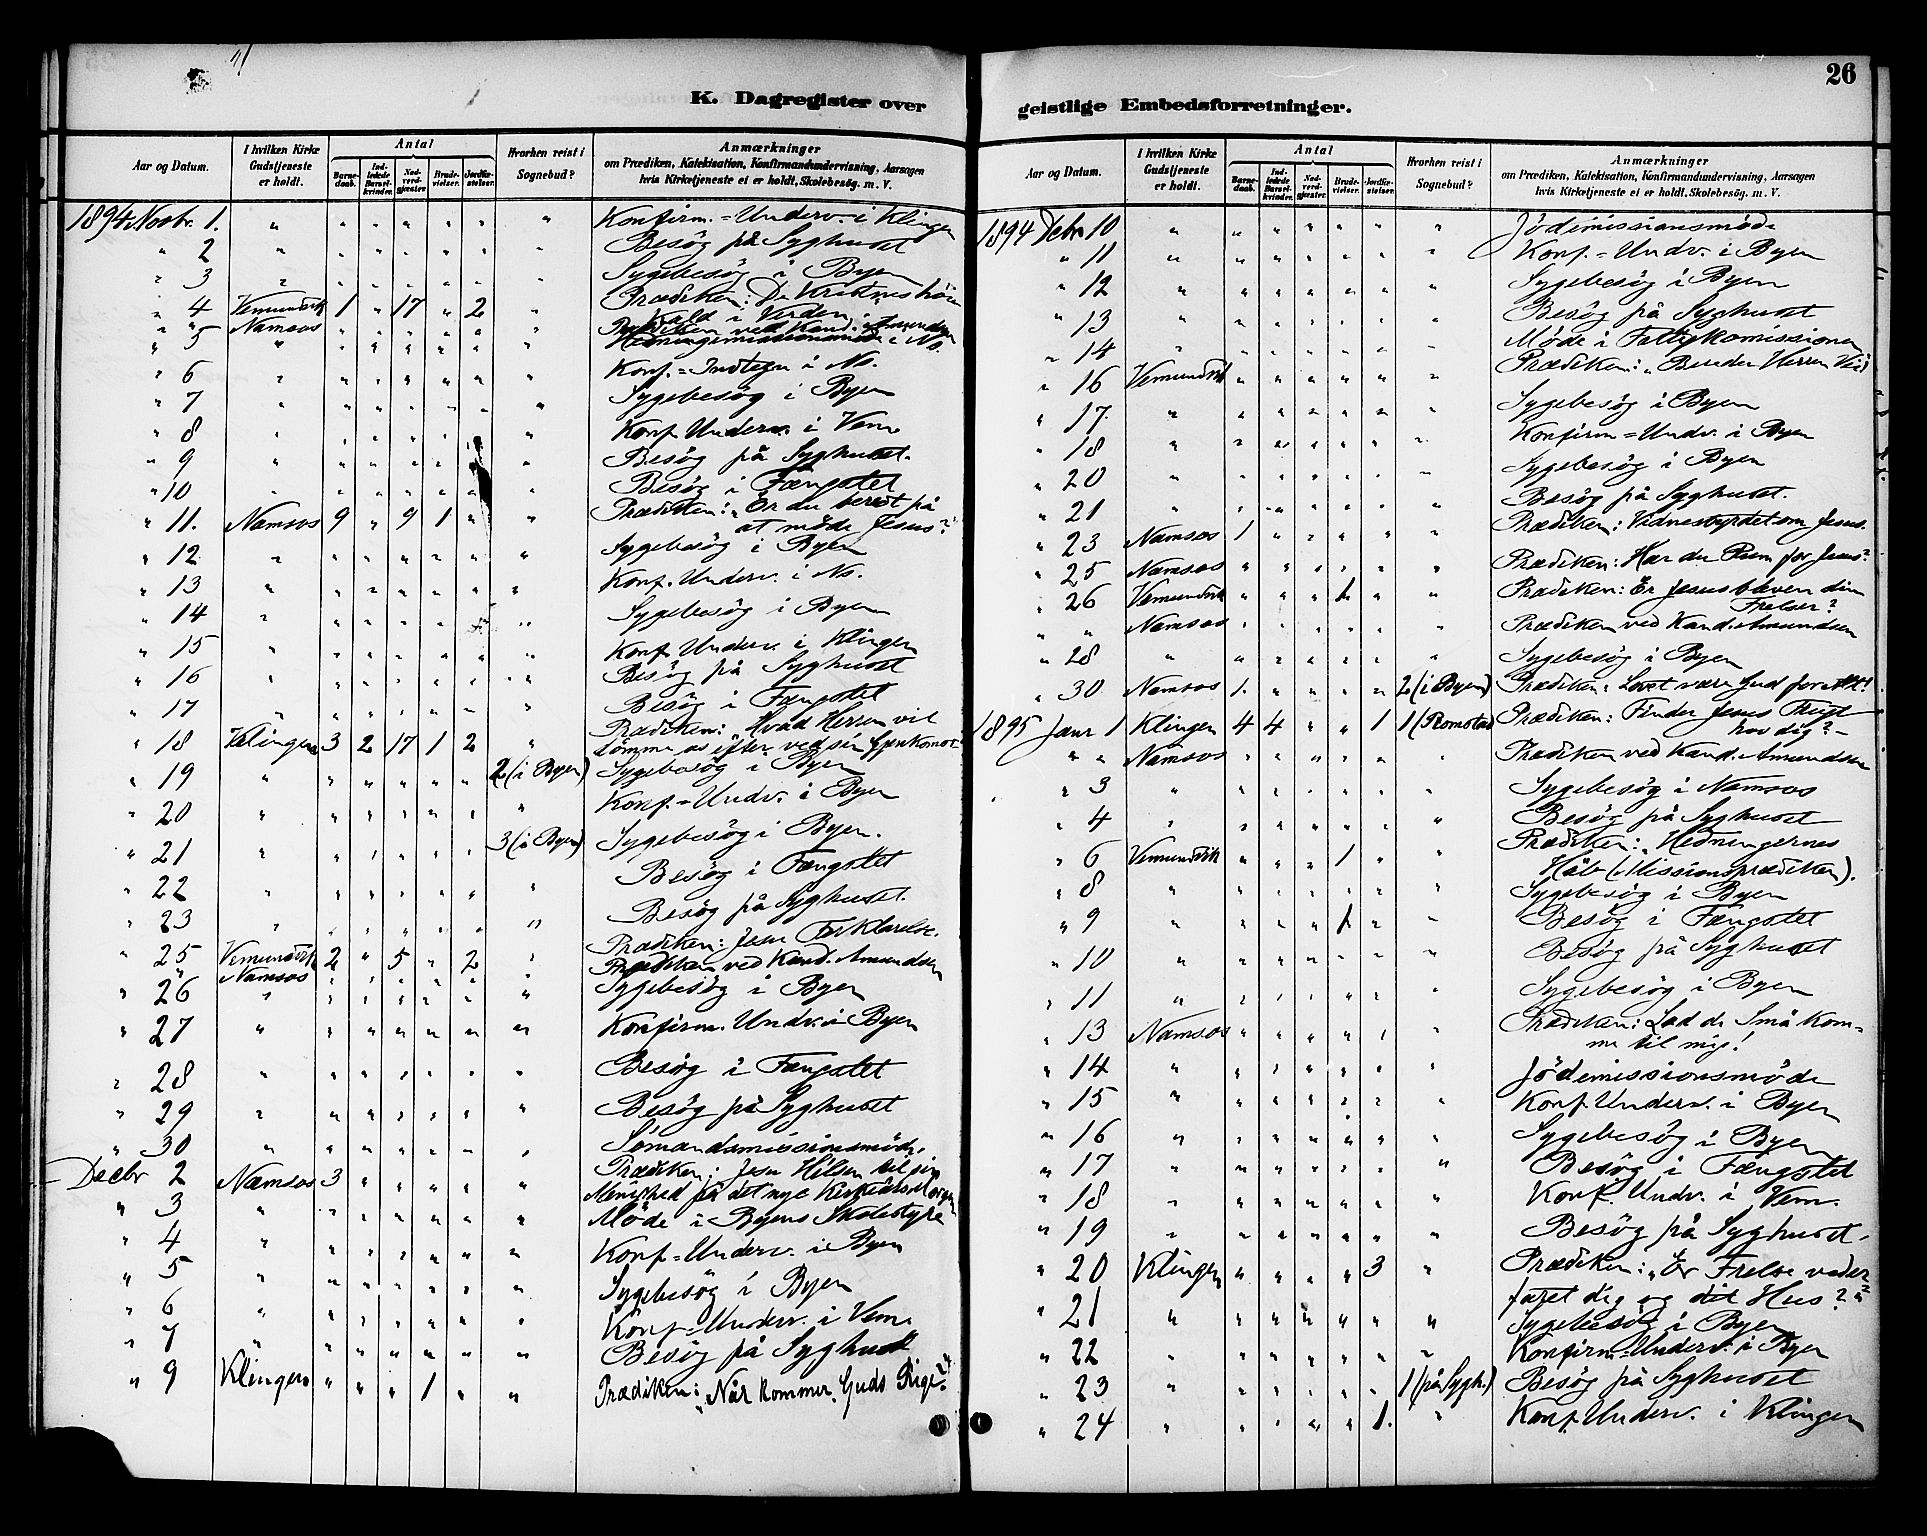 26
K. Dagregister over
geistlige Embedsforretninger.
Aar og Datum. I hvilken Kirke Gudstjeneste er holdt. Antal Barnedaab. Indledede Barselkvinder. Nadverdgjester Brudevielser. Jordfæstelser. Hvorhen reist i Sognebud? Anmærkninger
om Prædiken, Katekisation, Konfirmandundervisning, Aarsagen
hvis Kirketjeneste ei er holdt, Skolebesøg. m. V.
1894 Novbr. 1. " " " " " " " Konfirm.=Underv. i Klingen
" 2 " " " " " " " Besög på Syghuset
" 3 " " " " " " " Sygebesög i Byen
" 4 Vemundvik 1 " 17 " 2 " Prædiken: De Kristnes höie
Kald i Verden
" " Namsos " " " " " " Prædiken ved Kand. Amundsen
" 5 " " " " " " " Hedningemissionsmöde i Ns.
" 6 " " " " " " " Konf.=Indtegn i Ns.
" 7 " " " " " " " Sygebesög i Byen
" 8 " " " " " " " Konf. Underv. i Vem.
" 9 " " " " " " " Besög på Syghuset.
" 10 " " " " " " " Besög i Fængslet
" 11. Namsos 9 " 9 1 " " Prædiken: "Er du beredt på
at möde Jesus?"
" 12 " " " " " " " Sygebesög i Byen
" 13 " " " " " " " Konf. Underv. i Ns.
" 14 " " " " " " " Sygebesög i Byen
" 15 " " " " " " " Konf. Underv. i Klingen
" 16 " " " " " " " Besög på Syghuset
" 17 " " " " " " " Besög i Fængslet
" 18 Klingen 3 2 17 1 2 " Prædiken: "Hvad Herren vil
dömme os efter ved sin Gjenkomst
" 19 " " " " " " 2 (i Byen) Sygebesög i Byen
" 20 " " " " " " " Konf.=Undv. i Byen
" 21 " " " " " " 3 (i Byen) Sygebesög i Byen.
" 22 " " " " " " " Besög i Fængslet
" 23 " " " " " " " Besög på Syghuset.
" 25 Vemundvik 2 " 5 " 2 " Prædiken: Jesu Forklarelse.
" " Namsos " " " " " " Prædiken ved Kand. Amundsen
" 26 " " " " " " " Sygebesög i Byen
" 27 " " " " " " " Konfirm. Undv. i Byen
" 28 " " " " " " " Besög i Fængslet
" 29 " " " " " " " Besög på Syghuset
" 30 " " " " " " " Sömandsmissionsmöde.
Decbr 2 Namsos 3 " " " " " Prædiken: Jesu Hilsen til sin
Menighed på det nye Kirkeårs Morgen
" 3 " " " " " " " Möde i Byens Skolestyre
" 4 " " " " " " " Konf.=Underv. i Byen
" 5 " " " " " " " Sygebesög i Byen
" 6 " " " " " " " Konf.=Underv. i Vem.
" 7 " " " " " " " Besög på Syghuset
" 9 Klingen " " " 1 " " Prædiken: "Når kommer Guds Rige?"
Aar og Datum. I hvilken Kirke Gudstjeneste er holdt. Antal Barnedaab. Indledede Barselkvinder. Nadverdgjester. Brudevielser. Jordfæstelser. Hvorhen reist i Sognebud? Anmærkninger
om Prædiken, Katekisation, Konfirmandundervisning, Aarsagen
hvis Kirketjeneste ei er holdt, Skolebesøg. m. V.
1894 Debr 10 " " " " " " " Jödemissionsmöde
" 11 " " " " " " " Konf.=Undv. i Byen
" 12 " " " " " " " Sygebesög i Byen
" 13 " " " " " " " Besög på Syghuset
" 14 " " " " " " " Möde i Fattigkomissionen
" 16 Vemundvik " " " " " " Prædiken: "Bereder Herren Vei!
" 17. " " " " " " " Sygebesög i Byen
" 18 " " " " " " " Konfirm.=Undv. i Byen
" 20 " " " " " " " Sygebesög i Byen
" 21 " " " " " " " Besög på Syghuset.
" 23 Namsos 1 " " " " " Prædiken: Vidnesbyrdet om Jesus.
" 25 Namsos " " " " " " Prædiken: Har du Rum for Jesus?
" 26 Vemundvik " " " 1 " " Prædiken: Er Jesusbarnet din
Frelser?
" " Namsos " " " " " " Prædiken ved Kand. Amundsen
" 28 " " " " " " " Sygebesög i Byen
" 30 Namsos 1. " " " " 2 (i Byen) Prædiken: Lovet være Gud for Alt!
1895 Janr 1 Klingen 4 4 " " 1 1 (Romstad Prædiken: Finder Jesus Frugt
hos dig?
" " Namsos " " " " " " Prædiken ved Kand. Amundsen
" 3 " " " " " " " Sygebesög i Namsos
" 4 " " " " " " " Besög på Syghuset
" 6 Vemundvik " " " 1 " " Prædiken: "Hedningernes
Håb (Missionsprædiken).
" 8 " " " " " " " Sygebesög i Byen
" 9 " " " " 1 " " Besög i Fængslet
" 10 " " " " " " " Besög på Syghuset
" 11 " " " " " " " Sygebesög i Byen
" 13 Namsos " " " " 1 " Prædiken: Lad de Små kom-
me til mig!
" 14 " " " " " " " Jödemissionsmöde
" 15 " " " " " " " Konf. Underv. i Byen
" 16 " " " " " " " Sygebesög i Byen
" 17 " " " " " " " Besög i Fængslet
" 18 " " " " " " " Konf. Undv. i Vem.
" 19 " " " " " " " Besög på Syghuset.
" 20 Klingen " " " " 3 " Prædiken: "Er Frelse veder-
faret dig og dit Hus?"
" 21 " " " " " " " Sygebesög i Byen
" 22 " " " " " " " Konfirm=Underv. i Byen
" 23 " " " " " " 1 (på Sygh.) Besög på Syghuset
" 24 " " " " " 1. " Konf. Underv. i Klingen